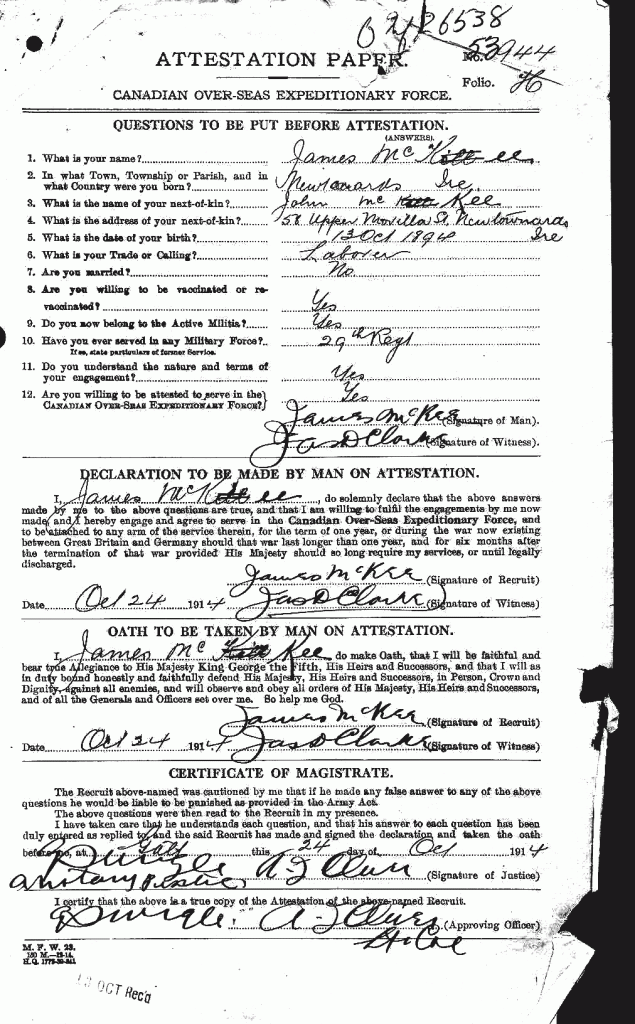 26538
53944
ATTESTATION PAPER.
No.
Folio.
CANADIAN OVER-SEAS EXPEDITIONARY FORCE.
QUESTIONS TO BE PUT BEFORE ATTESTATION.
(ANSWERS).
1. What is your name? James McKee
2. In what Town, Township or Parish, and in
what Country were you born? Newtownards Ire
3. What is the name of your next-of-kin? John McKee
4. What is the address of your next-of-kin? 58 Upper Movilla St, Newtownards, Ire
5. What is the date of your birth? 13 Oct 1894
6. What is your Trade or Calling? Laborer
7. Are you married? No
8. Are you willing to be vaccinated or re-
vaccinated? Yes
9. Do you now belong to the Active Militia? Yes
10. Have you ever served in any Military Force? 29th Regt
If so, state particulars of former Service.
11. Do you understand the nature and terms of
your engagement? Yes
12. Are you willing to be attested to serve in the
CANADIAN OVER-SEAS EXPEDITIONARY FORCE? Yes
James McKee (Signature of Man).
Jas D Clarke (Signature of Witness).
DECLARATION TO BE MADE BY MAN ON ATTESTATION.
I, James McKee, do solemnly declare that the above answers
made by me to the above questions are true, and that I am willing to fulfil the engagements by me now
made, and I hereby engage and agree to serve in the Canadian Over-Seas Expeditionary Force, and
to be attached to any arm of the service therein, for the term of one year, or during the war now existing
between Great Britain and Germany should that war last longer than one year, and for six months after
the termination of that war provided His Majesty should so long require my services, or until legally
discharged.
James McKee (Signature of Recruit)
Date Oct 24 1914 Jas D Clarke (Signature of Witness)
OATH TO BE TAKEN BY MAN ON ATTESTATION.
I, James Mc Kee, do make Oath, that I will be faithful and
bear true Allegiance to His Majesty King George the Fifth, His Heirs and Successors, and that I will as
in duty bound honestly and faithfully defend His Majesty, His Heirs and Successors, in Person, Crown and
Dignity, against all enemies, and will observe and obey all orders of His Majesty, His Heirs and Successors,
and of all the Generals and Officers set over me. So help me God.
James McKee (Signature of Recruit)
Date Oct 24 1914 Jas D Clarke (Signature of Witness)
CERTIFICATE OF MAGISTRATE.
The Recruit above-named was cautioned by me that if he made any false answer to any of the above
questions he would be liable to be punished as provided in the Army Act.
The above questions were then read to the Recruit in my presence.
I have taken care that he understands each question, and that his answer to each question has been
duly entered as replied to, and the said Recruit has made and signed the declaration and taken the oath
before me, at Galt this 24 day of Oct 1914
A Notary Public, (Signature of Justice)
I certify that the above is a true copy of the Attestation of the above-named Recruit.
(Approving Officer)
M. F. W. 23.
150 M.—12-14.
H.Q. 1772-39-241.
OCT Rec'd